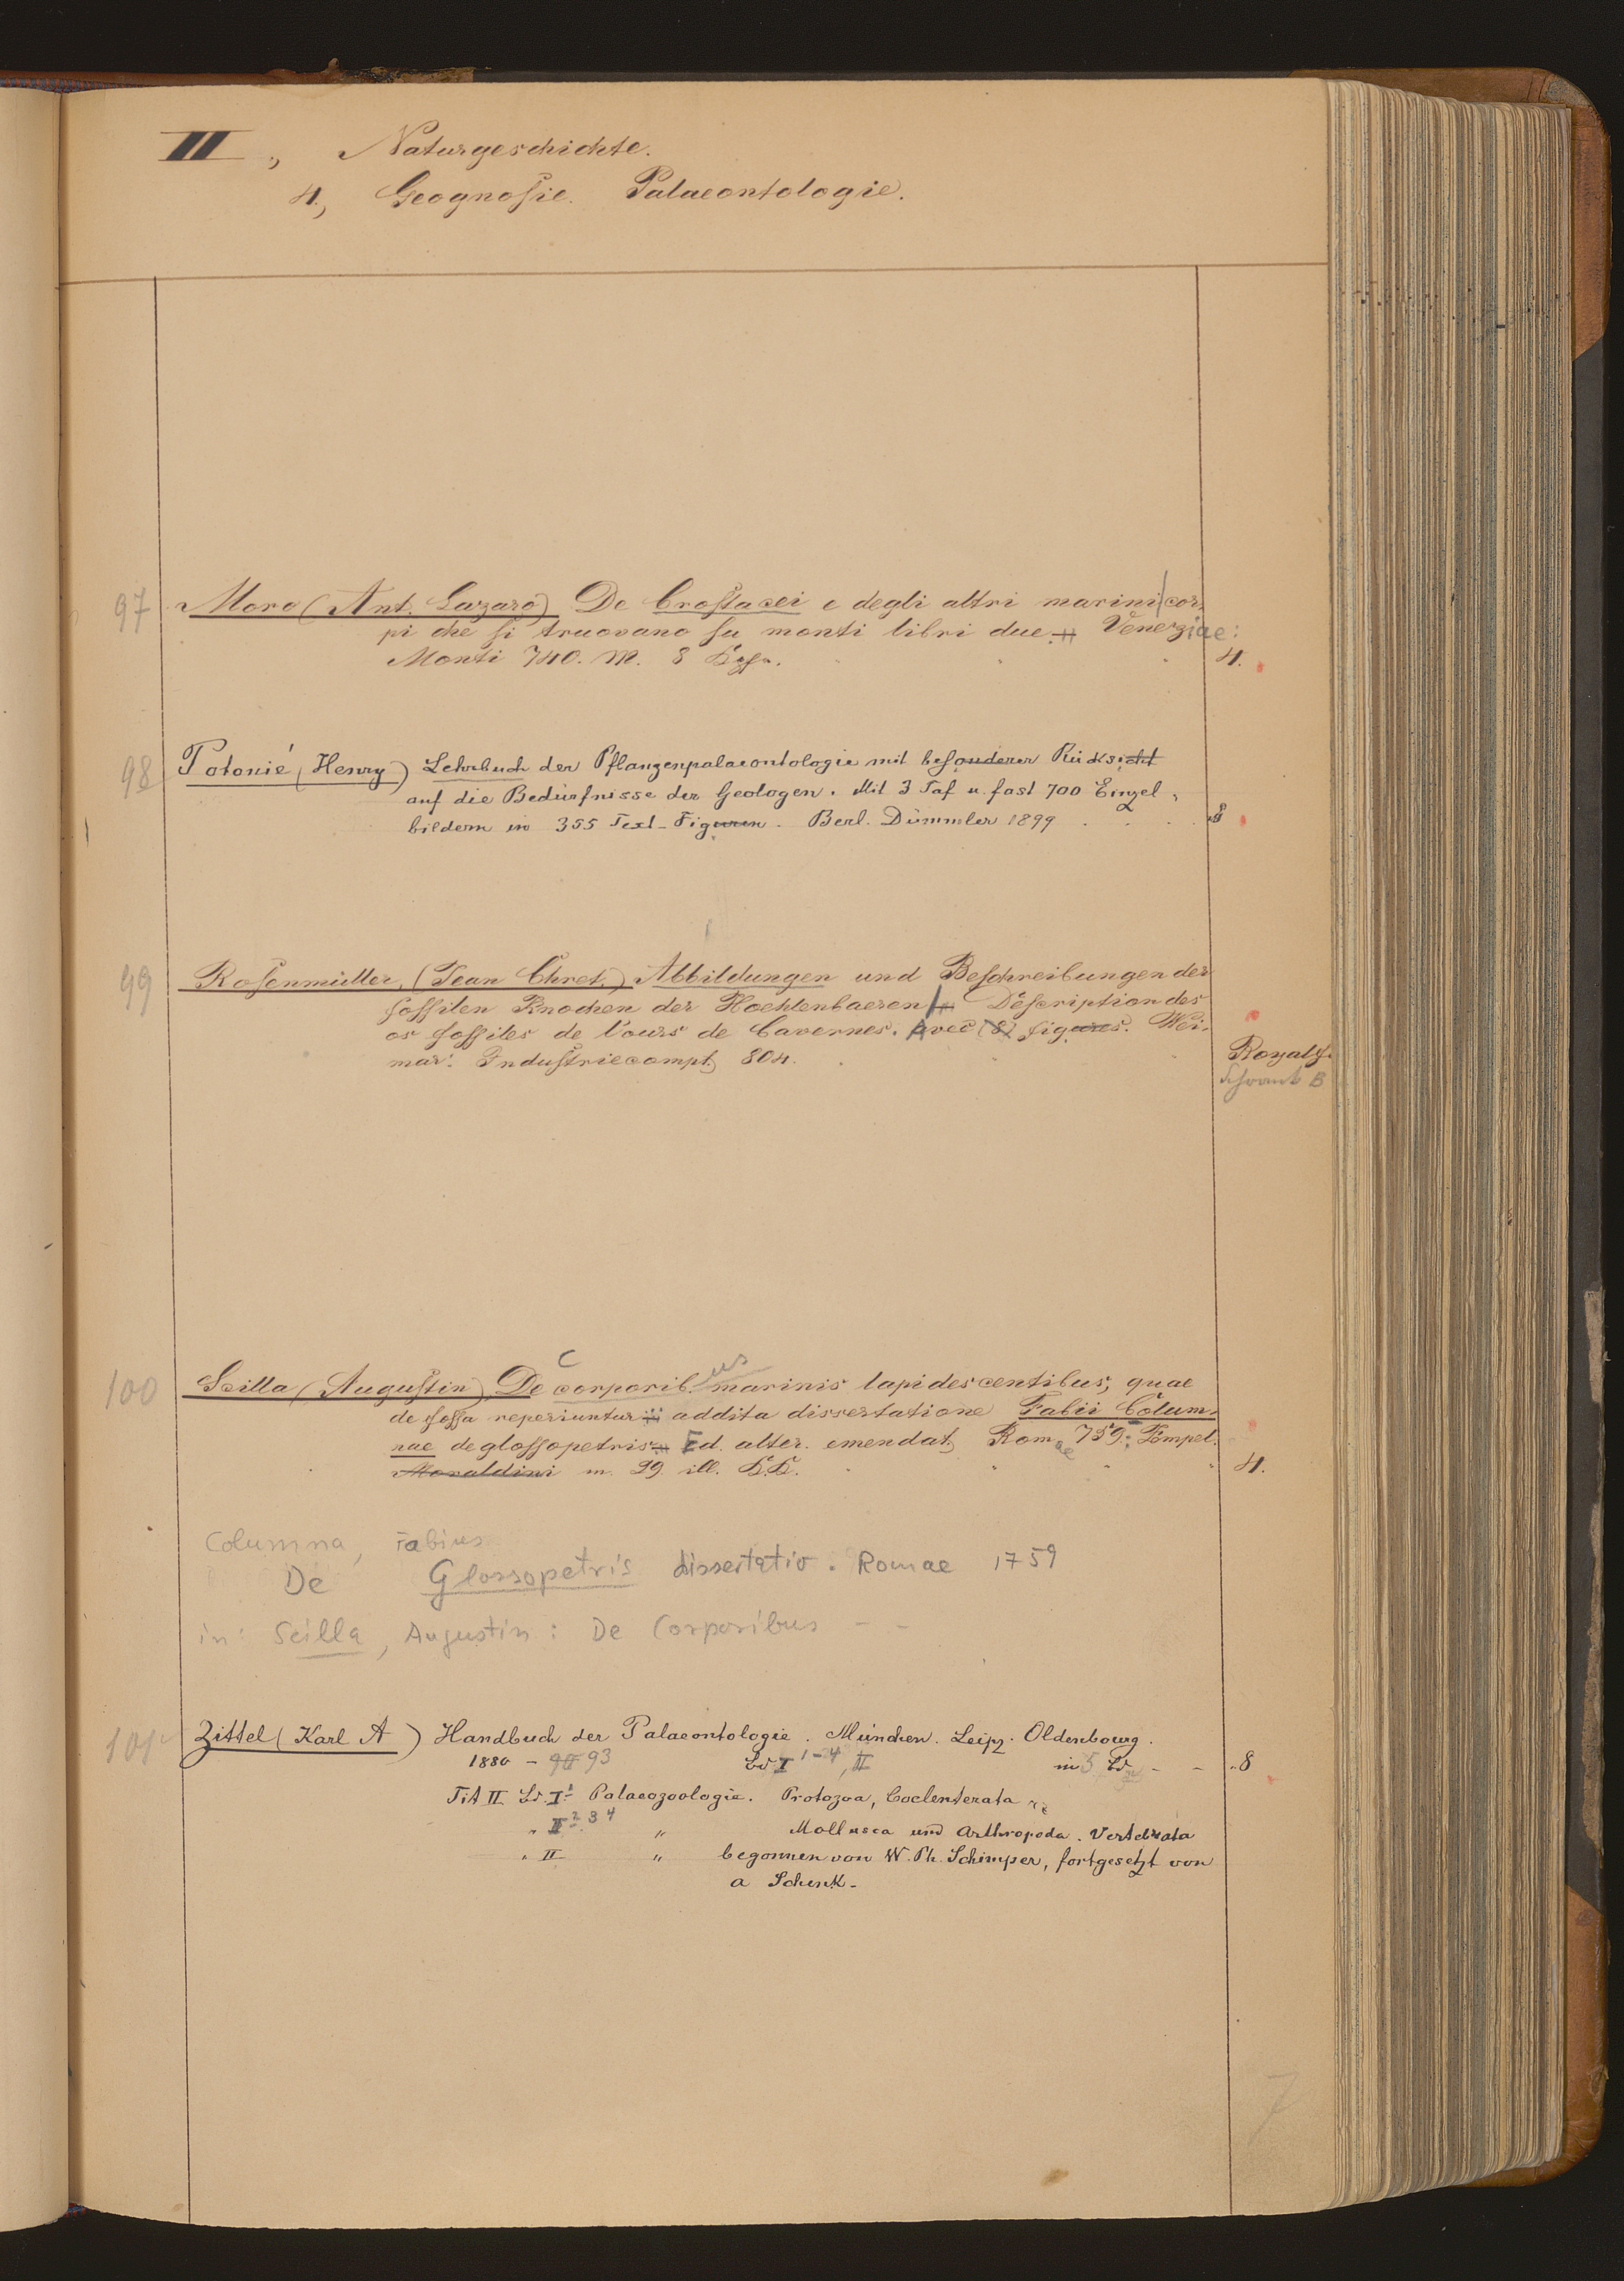 II, Naturgeschichte.
4, Geognosie. Palaeontologie.
97 Moro (Ant. Lazaro) De Crostacei e degli altri marini cor-
pi che si truovano su monti libri due. Veneziae:
Monti 740. m. 8 4.
98 Potonié (Henry) Lehrbuch der Pflanzenpalaeontologie mit besonderer Rücksicht
auf die Bedürfnisse der Geologen. Mit 3 Taf u. fast 700 Einzel-
bildern in 355 Text-Figuren. Berl. Dümmler 1899 . . . . 8
99 Rosenmüller, (Jean Chret.) Abbildungen und Beschreibungen der
fossilen Knochen der Hoehlenbaeren Description des
os fossiles de l'ours de Cavernes. Avec (8) figures. Wei-
mar: Industriecompt, 804. Royalf.
Schrank B
100 Scilla (Augustin) De Corporib.us marinis lapidescentibus, quae
defossa reperiuntur addita dissertatione Fabii Colum-
nae de glossopetris. Ed. alter. emendat, Romae 759: Tompel.
Monaldini m. 29 ill. K.K. 4.
Columna, Fabius
De Glossopetris dissertatio. Romae 1759
in: Scilla, Augustin: De Corporibus - -
101 Zittel (Karl A) Handbuch der Palaeontologie. München. Leipz. Oldenbourg.
1880 - 93 Bd I 1-4, II in 5 Bd - - 8
Tit II Bd. I 1 Palaeozoologie. Protozoa, Coelenterata
" II 2. 3 4 " Mollusca und Arthropoda. Vertebrata
" II " begonnen von W. Ph. Schimper, fortgesetzt von
a Schenk -
7